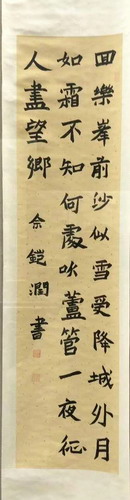 回樂峯前沙似雪受降城外月
如霜不知何處吹蘆管一夜征
人盡望鄉
佘鎧澗書